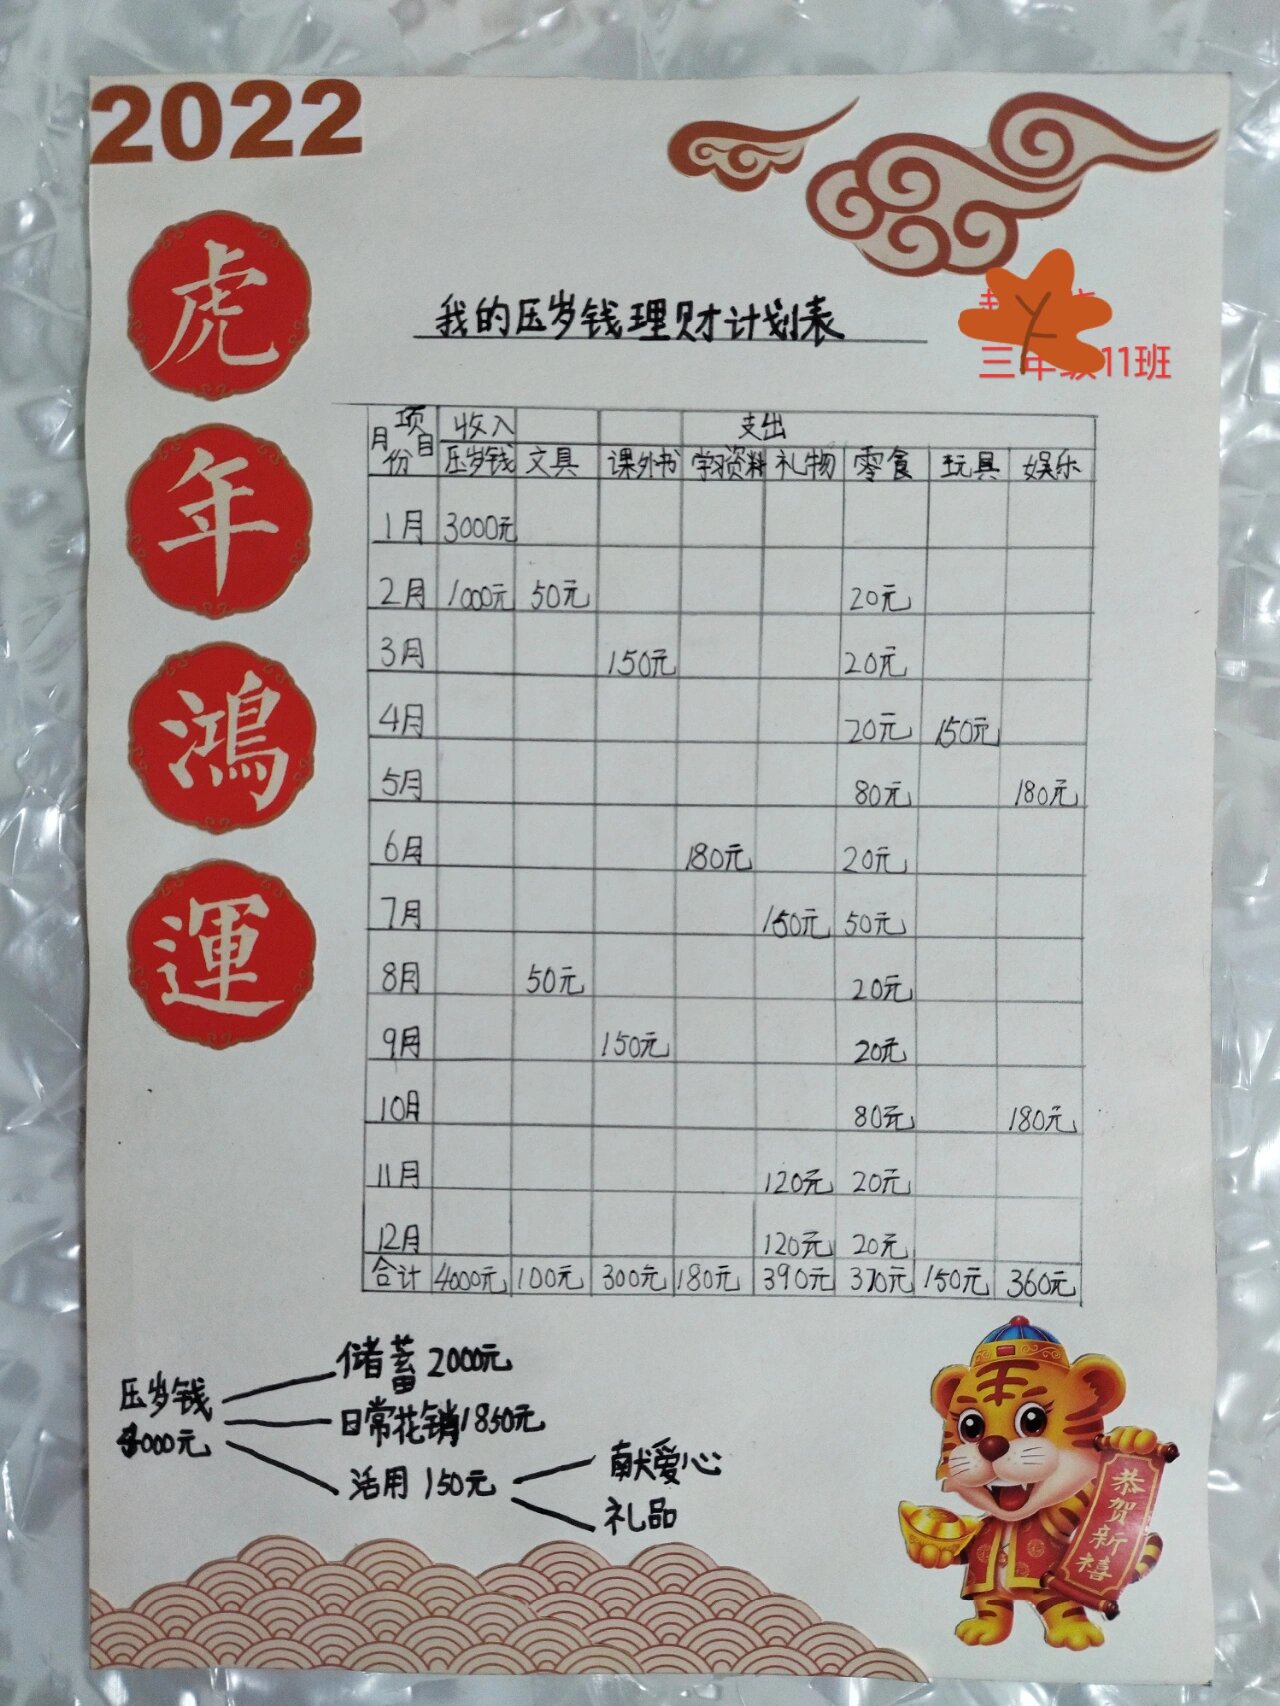 2022
虎
年
鴻
運
我的压岁钱理财计划表
三年级11班
项目 收入 支出
月份 压岁钱 文具 课外书 学习资料 礼物 零食 玩具 娱乐
1月 3000元
2月 1000元 50元 20元
3月 150元 20元
4月 20元 150元
5月 80元 180元
6月 180元 20元
7月 150元 50元
8月 50元 20元
9月 150元 20元
10月 80元 180元
11月 120元 20元
12月 120元 20元
合计 4000元 100元 300元 180元 390元 370元 150元 360元
压岁钱
4000元
储蓄 2000元
日常花销1850元
活用 150元
献爱心
礼品
恭贺新禧